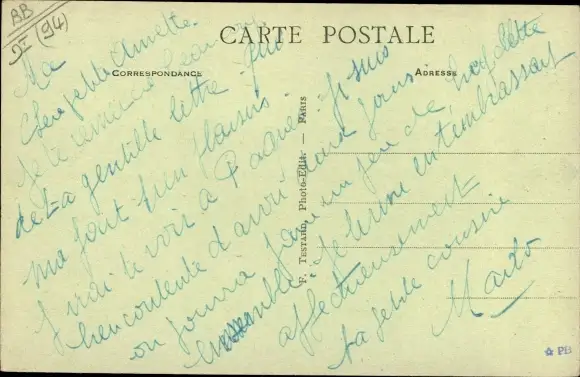 BB
(94)
CARTE POSTALE
CORRESPONDANCE
ADRESSE
F. TESTARD, Photo-Édit. — PARIS
Ma
chère petite Annette
Je te remercie beaucoup
de ta gentille lettre qui
ma fait bien plaisir. Je suis
J'irai te voir à Paques
bien contente d'avoir
on jouera
ensemble. Je termine en t'embrassant
affectueusement
ta petite cousine
PB